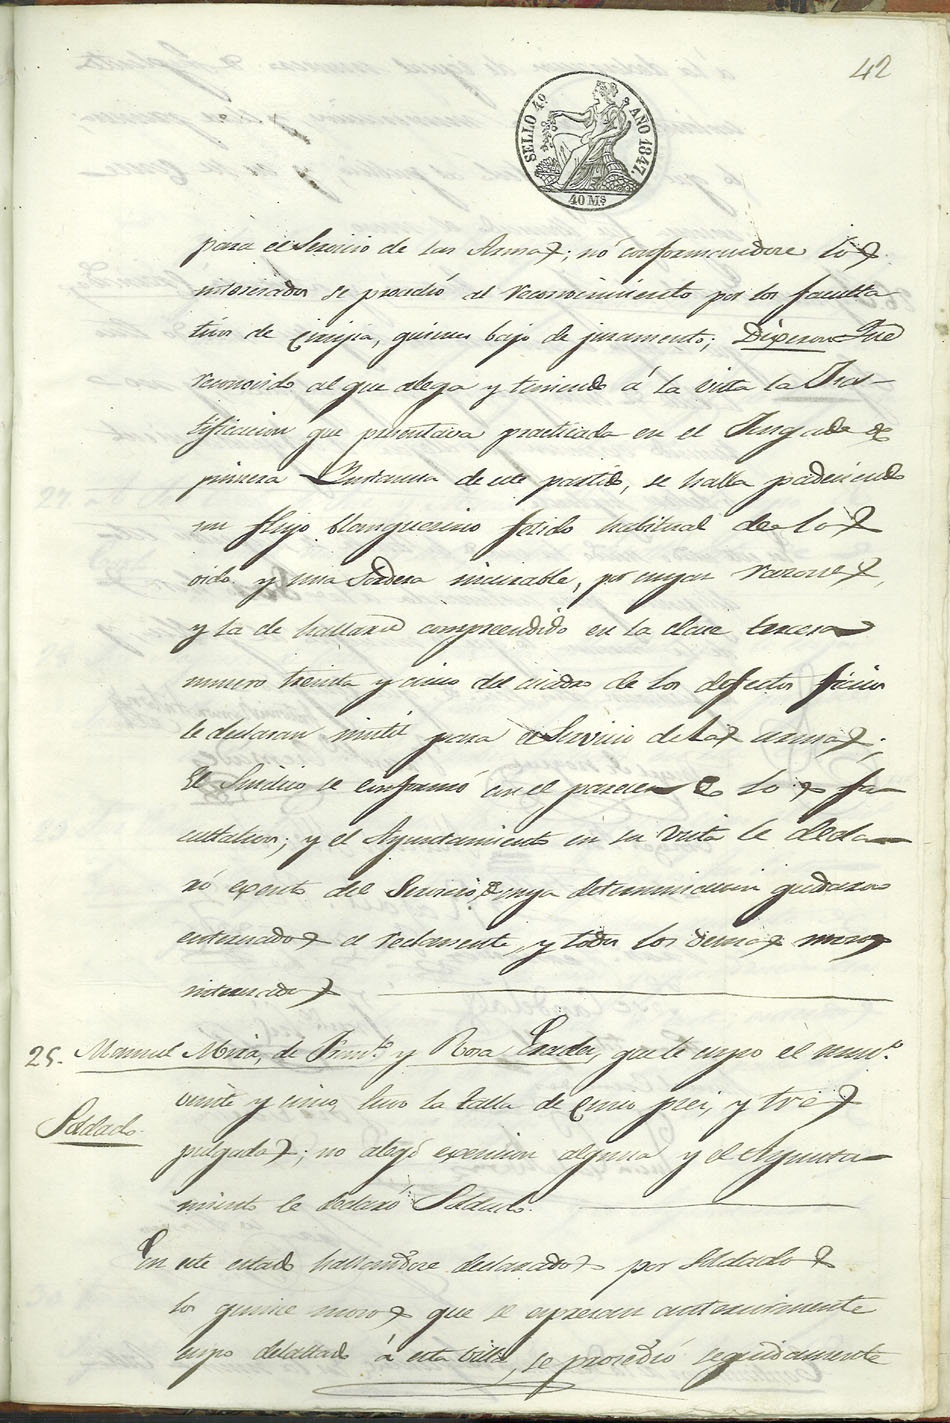 42
SELLO 4º AÑO 1847.
40 Ms
para el Servicio de las Armas; nó conformandose los
interesados se procedió al reconocimiento por los faculta
tivos de cirujia, quienes bajo de juramento; Dixeron Que
reconocido al que alega y teniendo á la vista la Jus-
tificacion que presentava practicada en el Juzgado de
primera Instancia de este partido, se halla padeciendo
un flujo fetido habitual de los
oidos y una Sordera incurable, por cuyas razones,
y la de hallarse comprendido en la clase tercera
numero treinta y cinco del cuadro de los defectos fisicos
le declaran inutil para el Servicio de las armas;
El Sindico se conformó con el parecer de los fa-
cultativos; y el Ayuntamiento en su vista le decla-
ró exento del Servicio, de cuya determinacion quedaron
enterados el reclamente, y todos los demas mozos
interesados
25. Manuel Mira, de Franco y Rosa que le cupo el numo
veinte y cinco, tuvo la talla de cinco pies, y tres
Soldado.
pulgadas; no alegó exencion alguna y el Ayunta-
miento le declaró Soldado.
En este estado hallandose declarados por Soldados
los quince mozos que se expresan anteriormente
cupo detallado á esta Villa, se procedió seguidamente